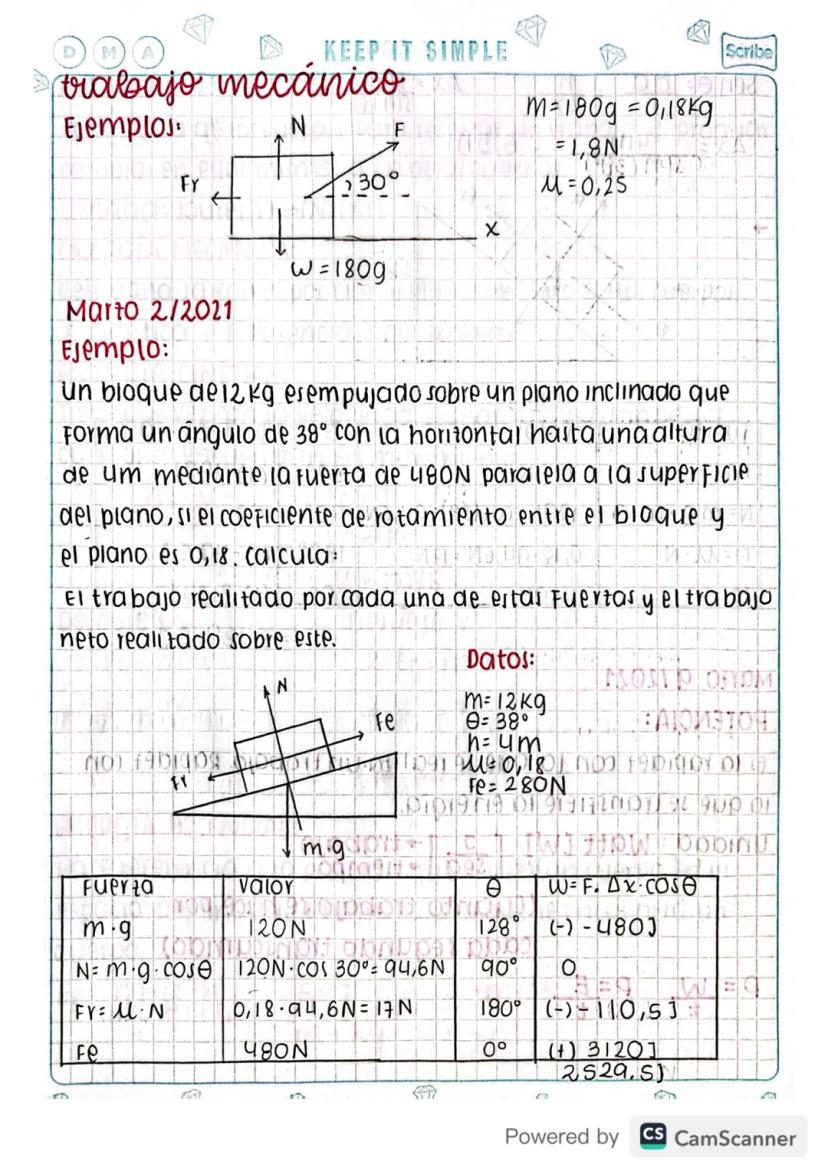 D M A
KEEP IT SIMPLE
Scribe
trabajo mecánico
Ejemplos:
N
F
Fr
30°
X
W=180g
m=180g =0,18Kg
=1,8N
M=0,25
Marzo 2/2021
Ejemplo:
Un bloque de 12 Kg es empujado sobre un plano inclinado que
forma un ángulo de 38° con la horizontal hasta una altura
de 4m mediante la fuerza de 480N paralela a la superficie
del plano, si el coeficiente de rozamiento entre el bloque y
el plano es 0,18. calcula:
El trabajo realizado por cada una de estas fuerzas y el trabajo
neto realizado sobre este.
N
Fe
Fr
m·g
Datos:
m= 12Kg
θ= 38°
h= 4m
M= 0,18
Fe= 280N
Fuerza Valor θ W= F. Δx·cosθ
m·g 120N 128° (-) -480J
N= m·g·cosθ 120N·cos 30°= 94,6N 90° 0
Fr= M·N 0,18·94,6N= 17N 180° (-)-110,5J
Fe 480N 0° (+) 3120J
2529.5J
Powered by CS CamScanner